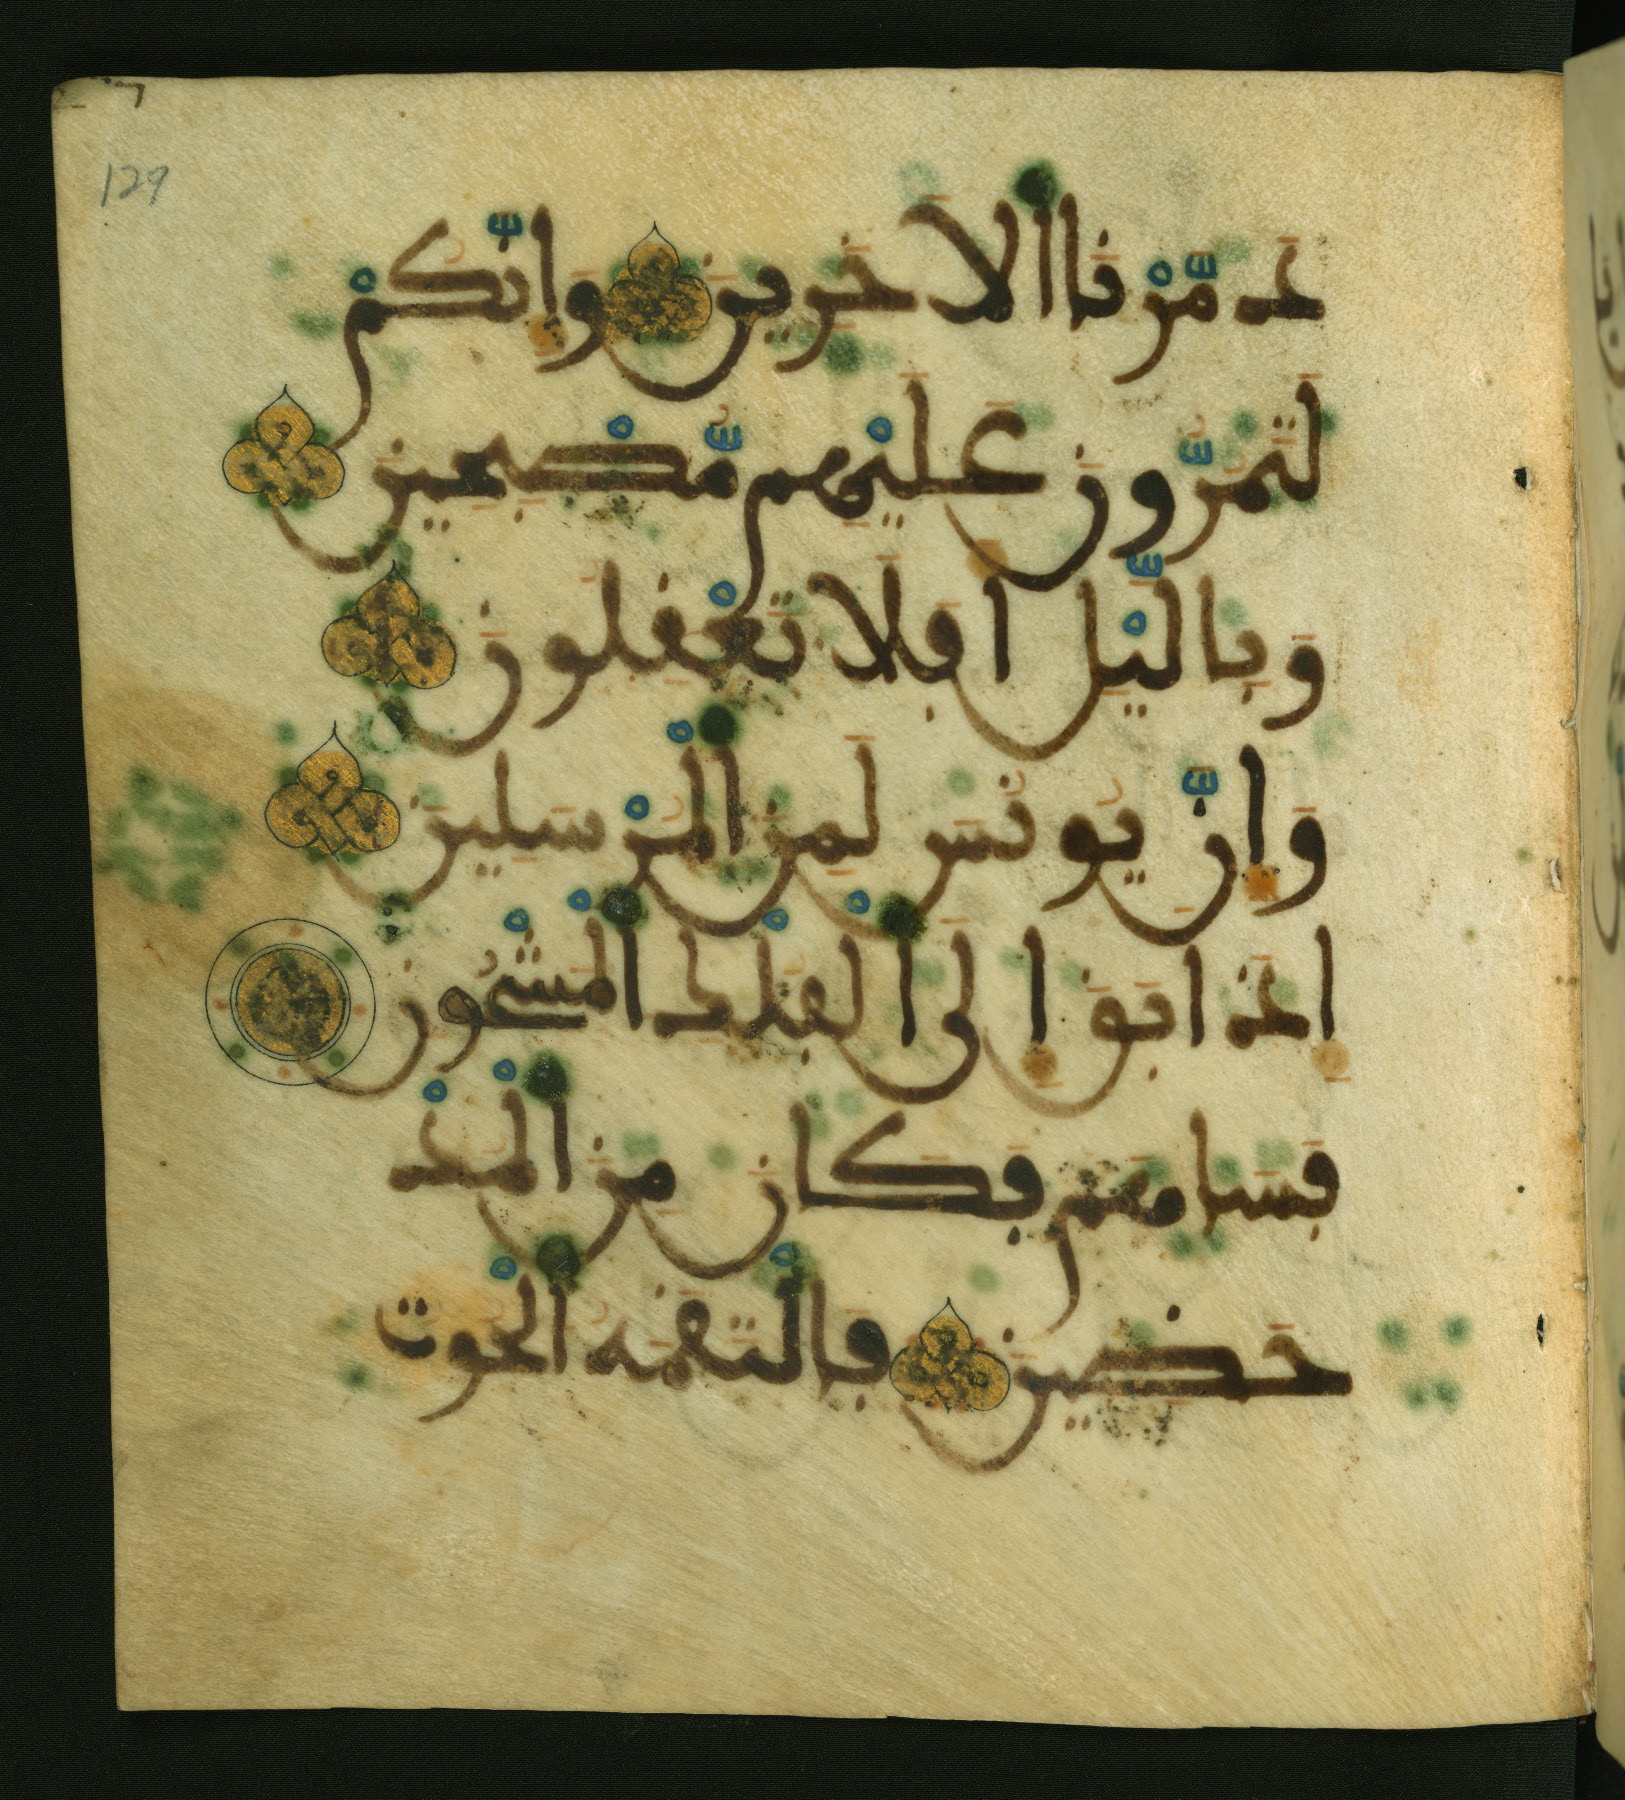 129
دمّرنا الاخرين وانّكم
لتمرّون عليهم مّصبحين
وباليل افلا تعقلون
وانّ يونس لمن المرسلين
اذ ابق الى الفلك المشحون
فساهم فكان من المد
حضين فالتقمه الحوت